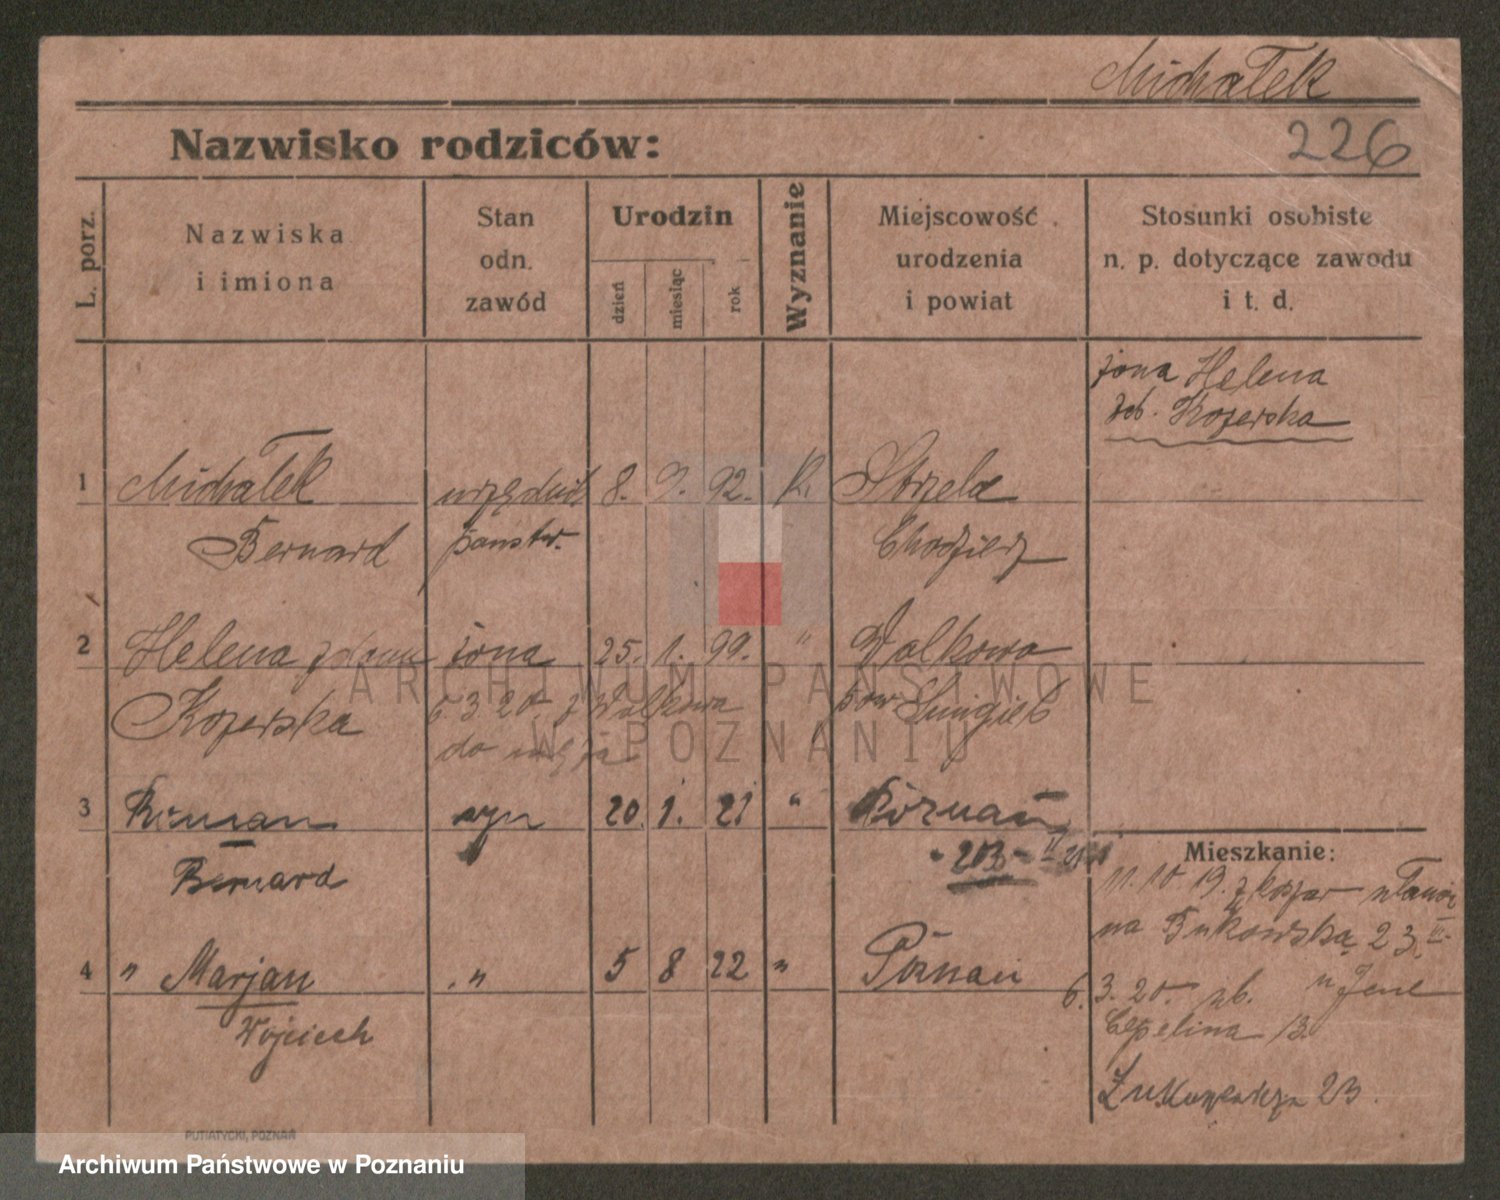 Michałek
Nazwisko rodziców:
226
L. porz.
Nazwiska
i imiona
Stan
odn.
zawód
Urodzin
dzień
miesiąc
rok
Wyznanie
Miejscowość
urodzenia
i powiat
Stosunki osobiste
n. p. dotyczące zawodu
i t. d.
żona Helena
Kozerska
1 Michałek urzędnik 8. 9. 92. K. Strzelce
Bernard państw. Chodzież
2 Helena żona 25. 1. 99. " Walkowa
Kozerska 5.3.20 z Walkowa pow. Śmigiel
do męża
3 Roman syn 20. 1. 21 " Poznań
Bernard
Mieszkanie:
11.10.19. z koszar
na Bukowską 23 III
4 " Marjan " 5 8 22 " Poznań
Wojciech
6.3.20.
Cepelina 13
23.
PUTIATYCKI, POZNAŃ
ARCHIWUM PAŃSTWOWE
W POZNANIU
Archiwum Państwowe w Poznaniu